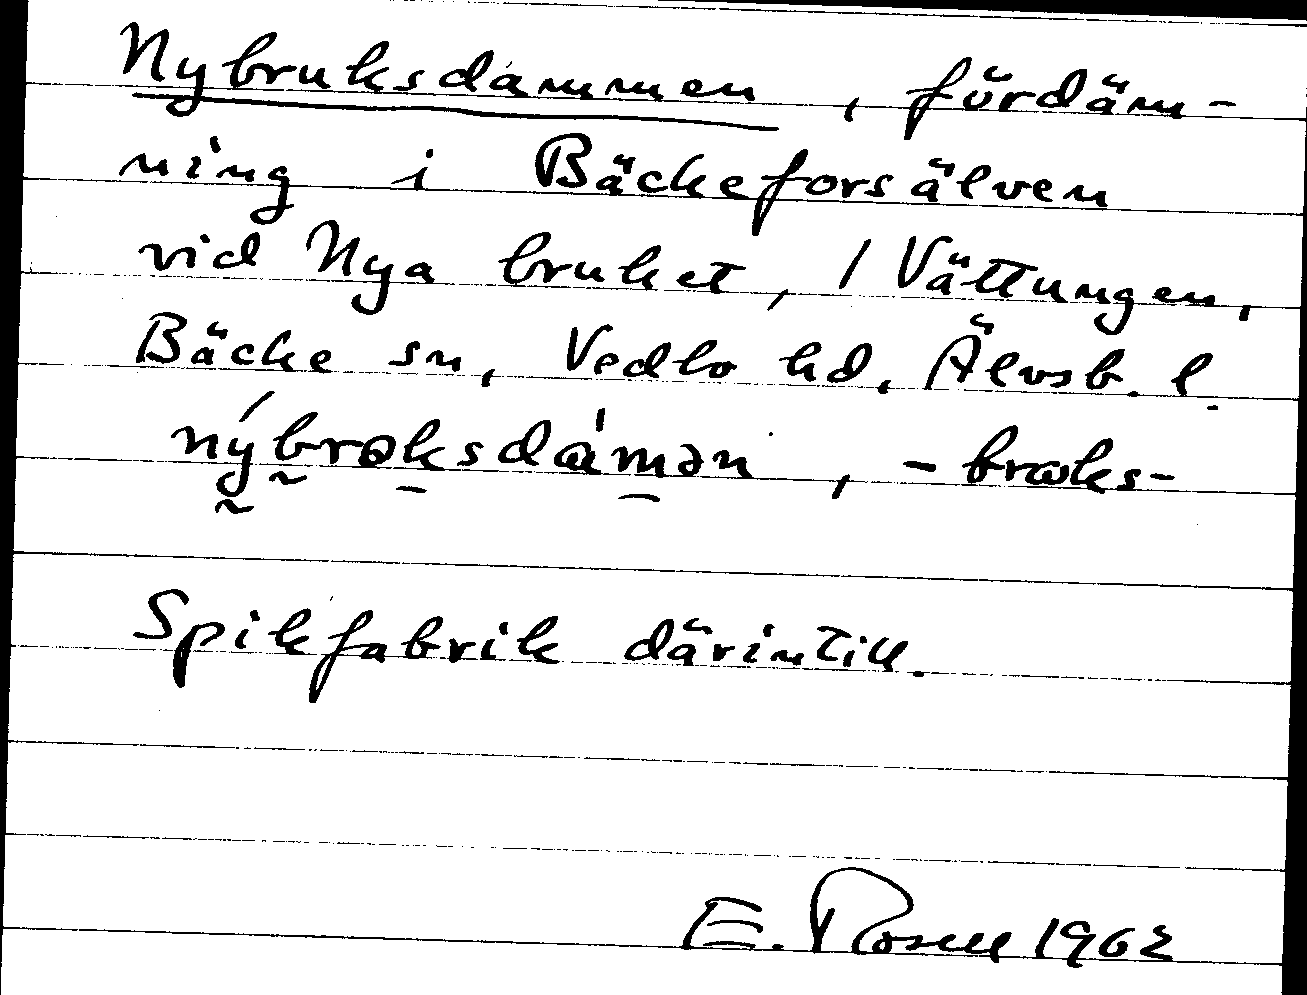 Nybruksdammen, fördäm-
ning i Bäckeforsälven
vid Nya bruket, / Vättungen,
Bäcke sn, Vedbo hd, Älvsb. l.
nýbroksdámən, -braks-
Spikfabrik därintill.
E. Rosell 1962